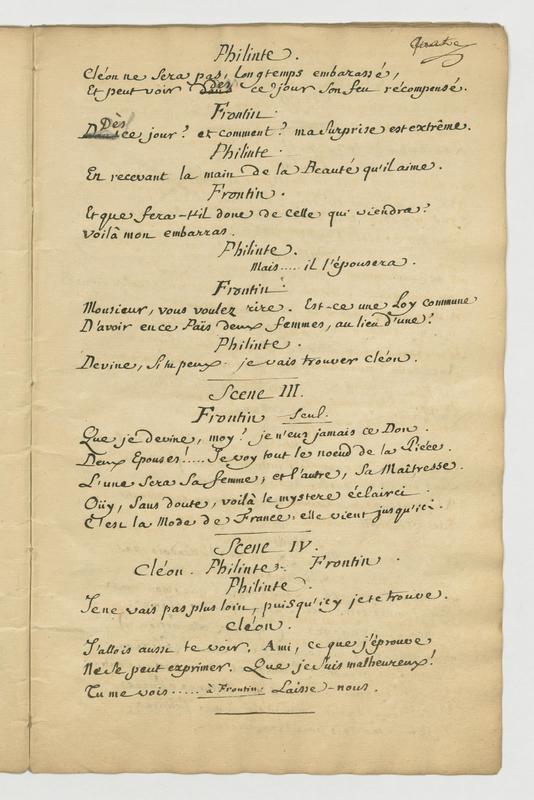 Philinte.
Cléon ne sera pas longtemps embarassé,
Et peut voir dès ce jour son feu récompensé.
Frontin.
Dès ce jour? et comment? ma surprise est extrême.
Philinte.
En recevant la main de la Beauté qu'il aime.
Frontin.
Et que fera-t-il donc de celle qui viendra?
voilà mon embarras.
Philinte.
Mais.... il l'épousera.
Frontin.
Monsieur, vous voulez rire. Est-ce une Loy commune
D'avoir en ce Païs deux femmes, au lieu d'une?
Philinte.
Devine, si tu peux. je vais trouver Cléon.
Scene III.
Frontin seul.
Que je devine, moy? je n'eus jamais ce Don.
Deux Epouses!.... Je voy tout le noeud de la Piéce.
L'une sera sa femme, et l'autre, sa Maîtresse.
Oüy, sans doute, voilà le mystere éclairci.
C'est la Mode de France; elle vient jusqu'ici.
Scene IV.
Cléon. Philinte. Frontin.
Philinte.
Je ne vais pas plus loin, puisqu'icy je te trouve.
Cléon.
J'allois aussi te voir. Ami, ce que j'éprouve
Ne se peut exprimer. Que je suis malheureux!
Tu me vois..... à Frontin. Laisse-nous.